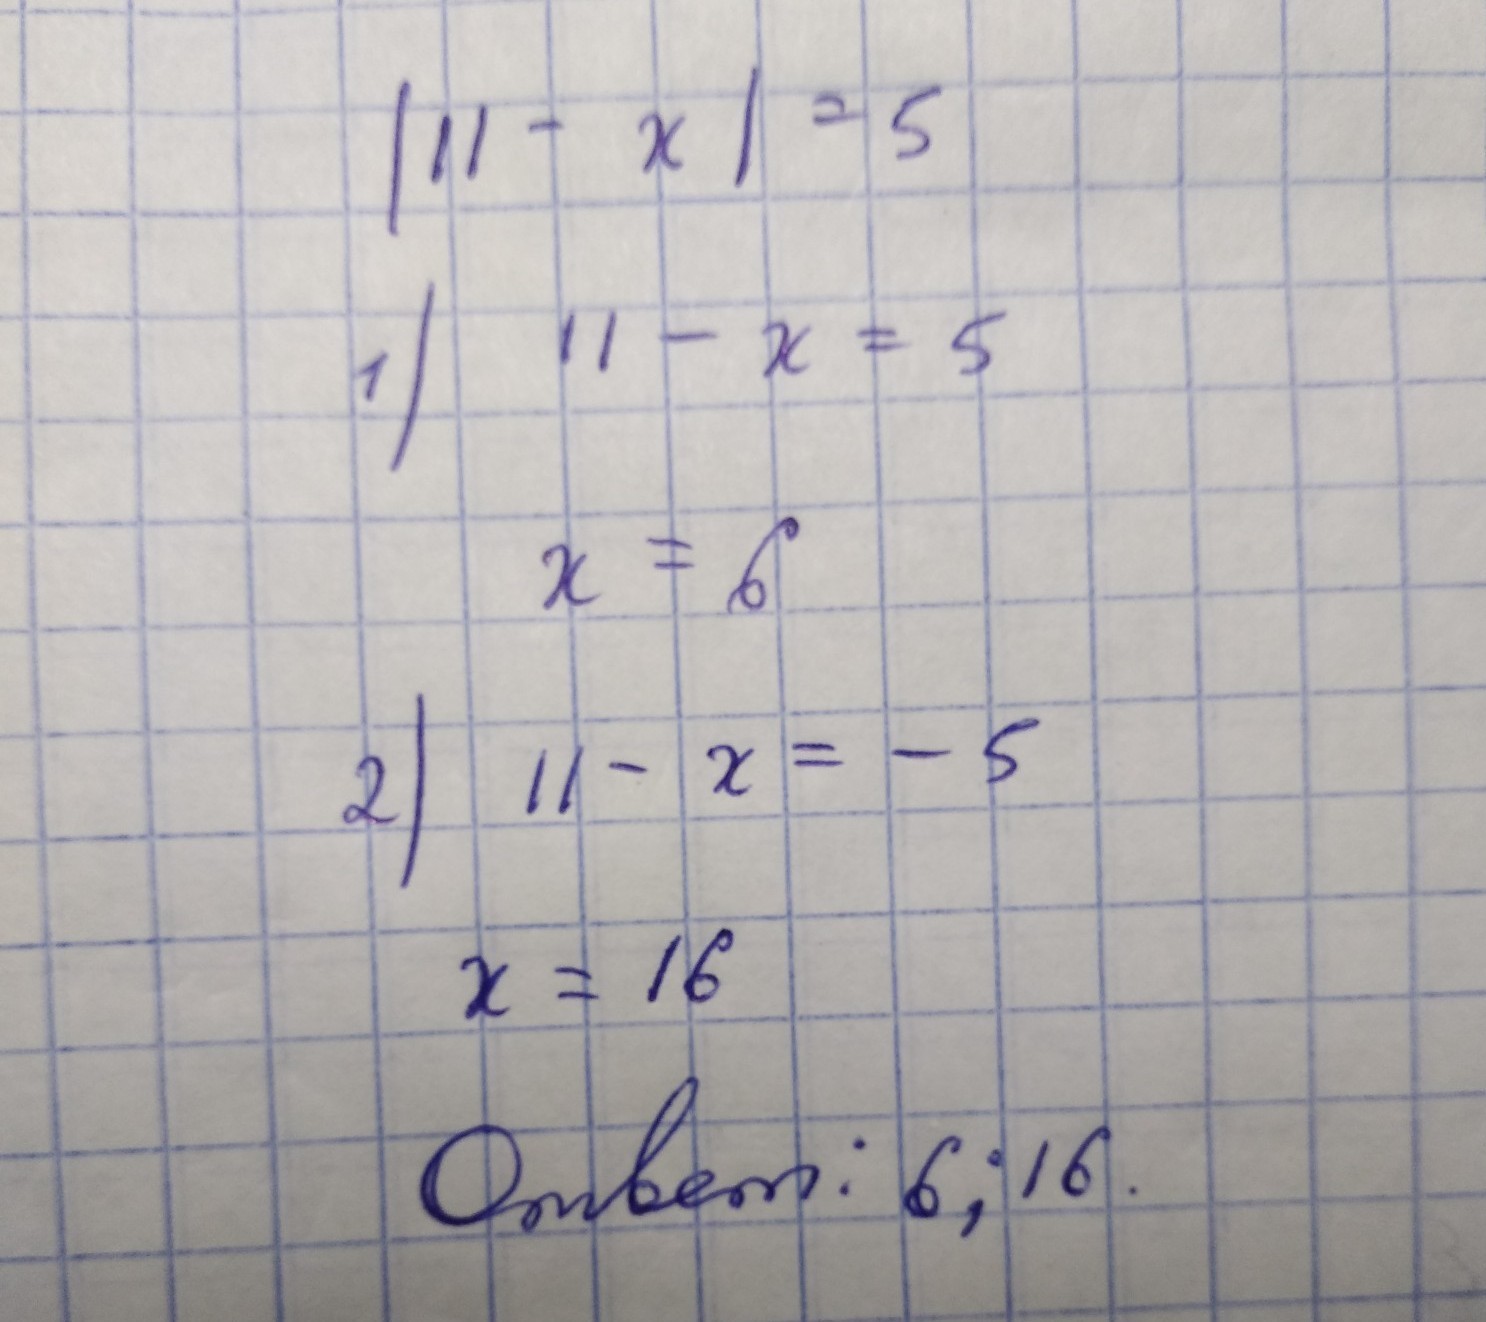 |11 - x| = 5
1) 11 - x = 5
x = 6
2) 11 - x = - 5
x = 16
Ответ: 6; 16.